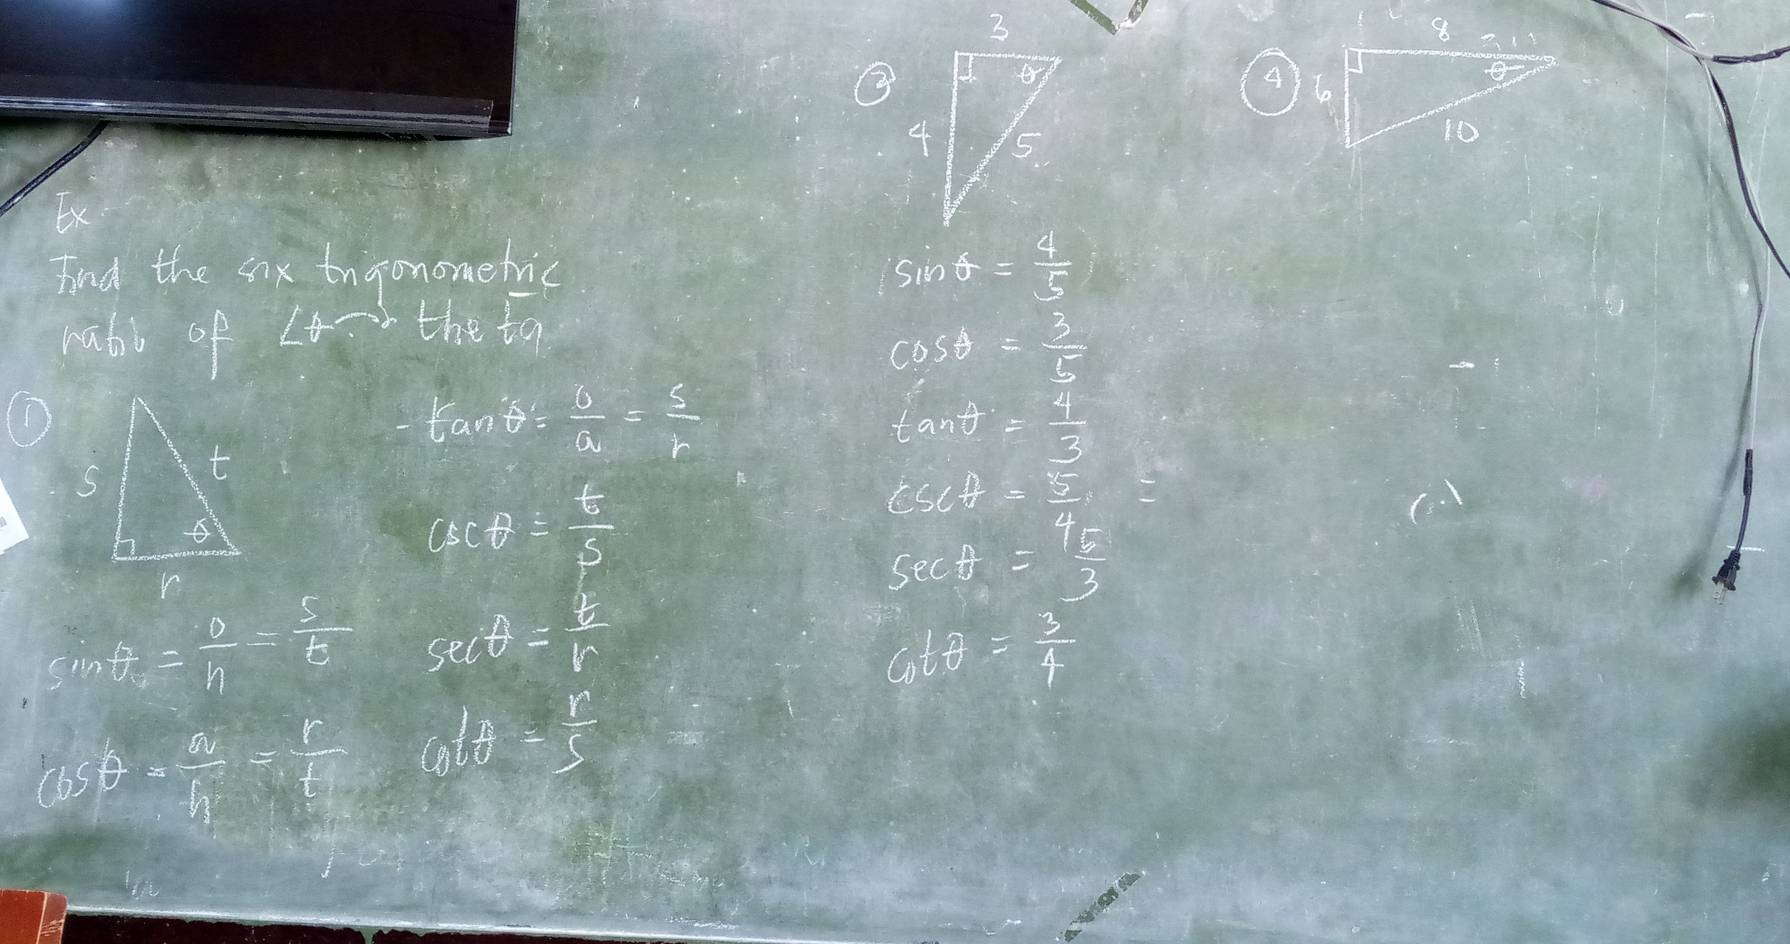 Ex
Find the six trigonometric
ratio of ∠θ → theta
①
s
t
θ
r
sinθ = o/h = s/t
cosθ = a/h = r/t
tanθ = o/a = s/r
cscθ = t/s
secθ = t/r
cotθ = r/s
3
θ
4
5
sinθ = 4/5
cosθ = 3/5
tanθ = 4/3
cscθ = 5/4 =
secθ = 5/3
cotθ = 3/4
④
8
θ
6
10